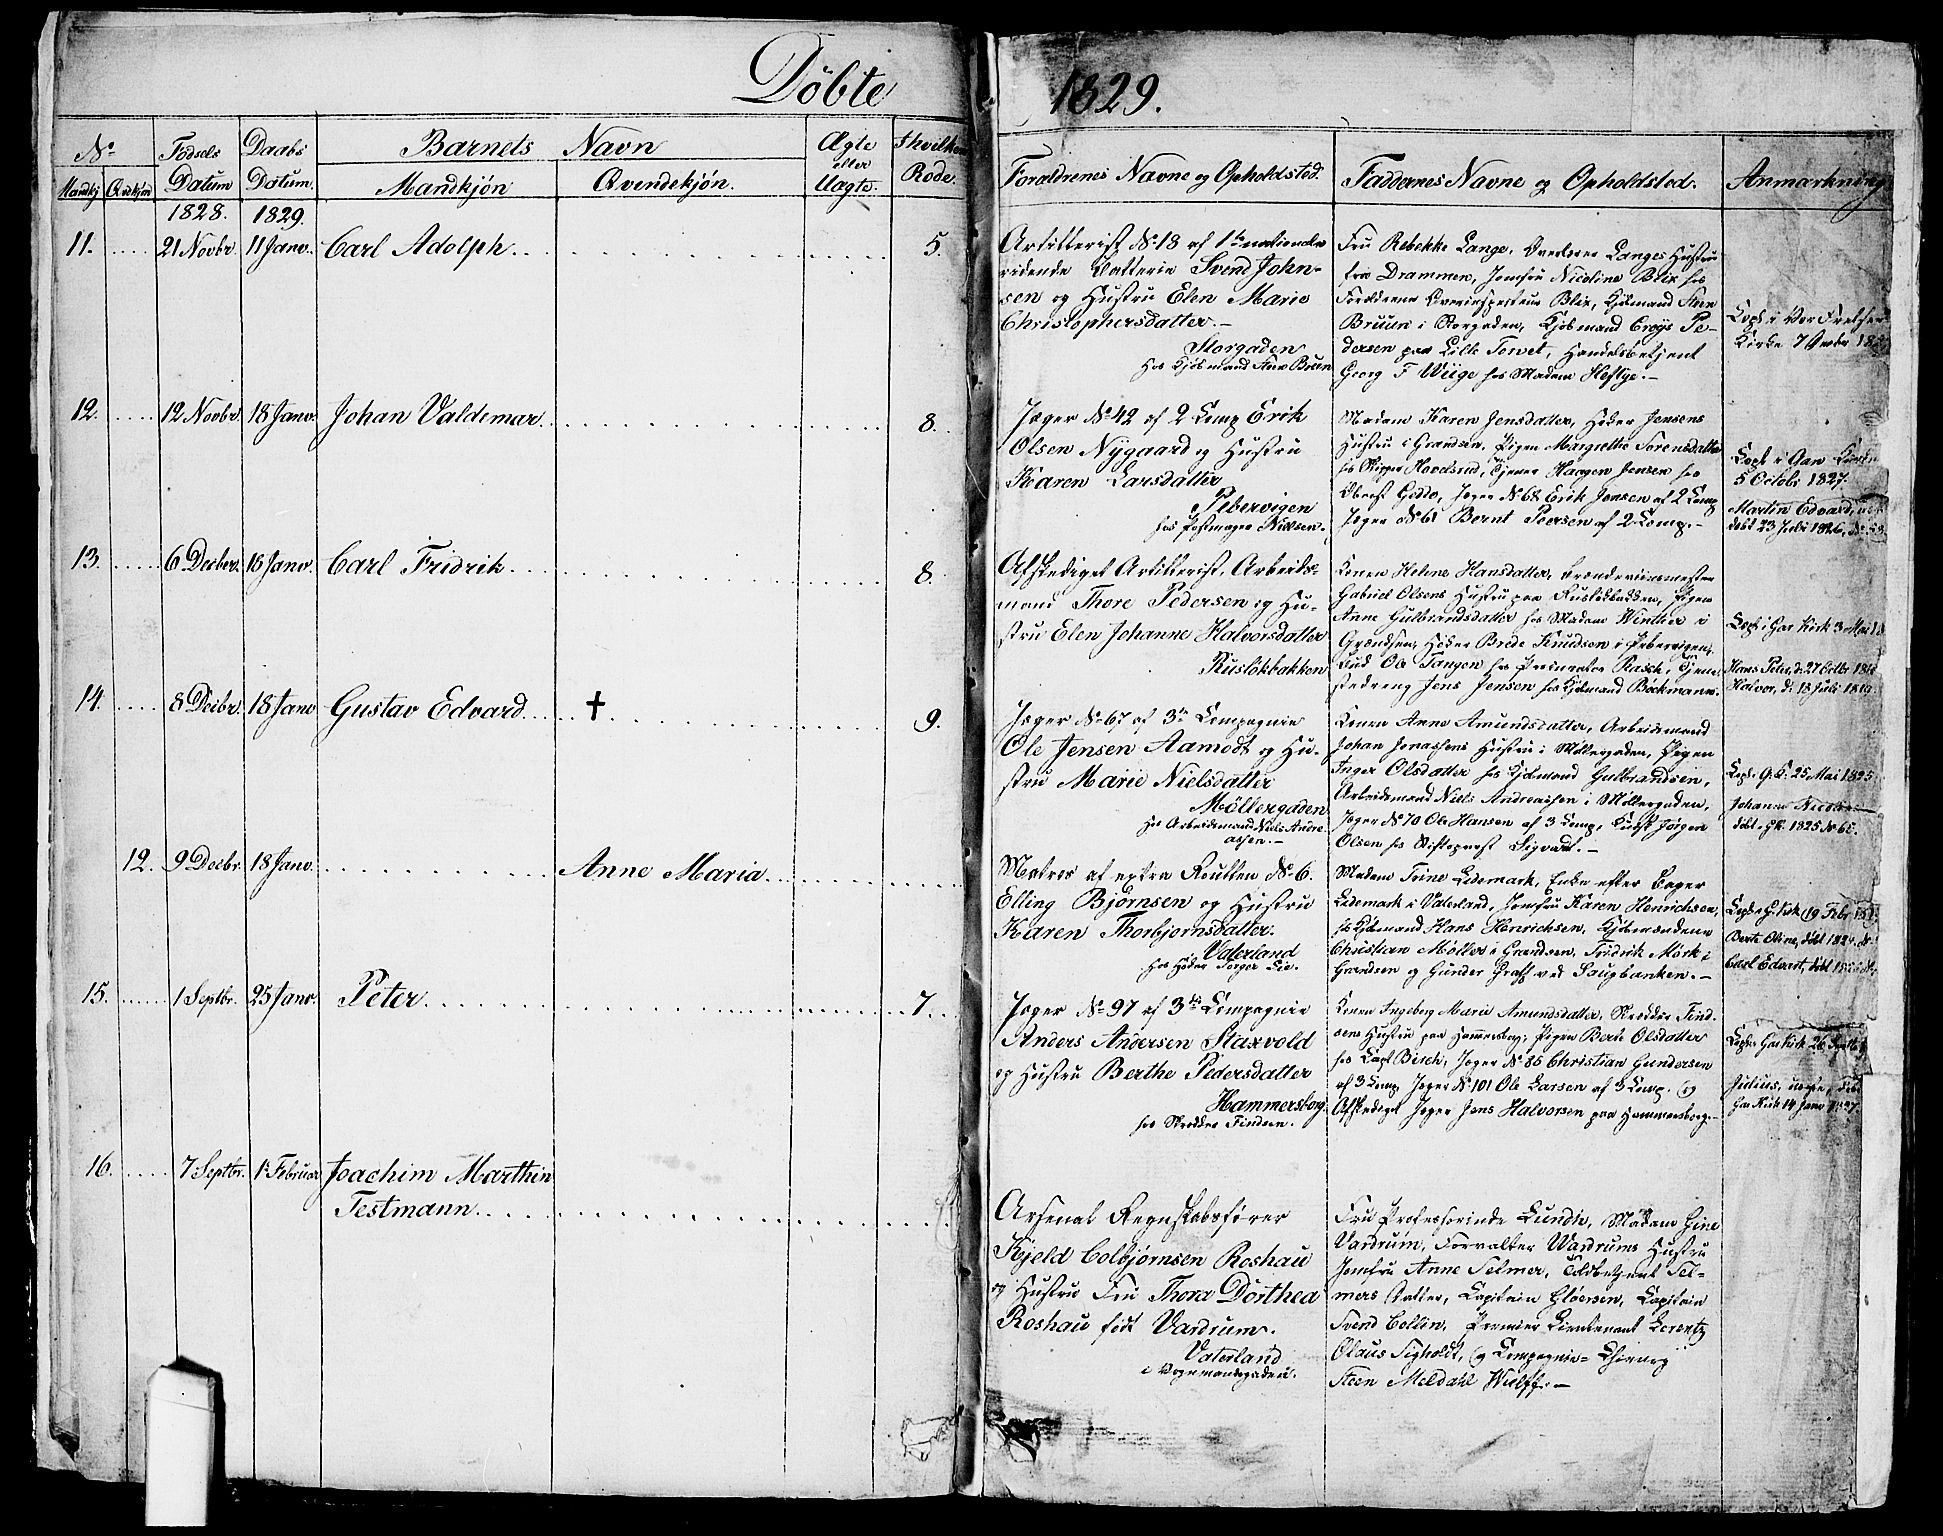 Döbte 1829.
No
Födsels Daabs Barnets Navn Ægte Ihvilken
Mandkj Qvekjön Datum Datum. Mandkjön Qvendekjön. eller Uægte. Rode.
Forældrenes Navne og Opholdsted. Faddernes Navne og Opholdsted. Anmærkning
1828. 1829.
11. 21 Novbr. 11 Janv. Carl Adolph 5.
Artillerist No 18 af 1te nationale
ridende Batterie Svend John-
sen og Hustru Elen Marie
Christophersdatter.-
Storgaden
hos Kjöbmand Bruun
Fru Rebekke Lange, Langes Hustru
fra Drammen, Jomfru Nicoline Blix hos
Forældrene Blix, Kjöbmand
Bruun i Storgaden, Kjöbmand Pe-
dersen paa Lille Torvet, Handelsbetjent
Georg F Wiige hos Madam Heftye.-
Cop. i Vor Frelser
Kirke
12. 12 Novbr. 18 Janv. Johan Valdemar 8.
Jæger No 42 af 2 Comp Erik
Olsen Nygaard og Hustru
Karen Larsdatter
Pebervigen
hos Nielsen.
Madam Karen Jensdatter, Jensens
Hustru i Grændsen, Pigen Margrethe Sorensdatter
hos Skipper Hovelsrud, Tjener Haagen Jensen hos
Oberst Gedde, Jæger No 68 Erik Jensen af 2 Comp
Jæger No 61 Bernt Peersen af 2 Comp.-
Cop. i Gar. Kirken
5 Octobr 1827.
Martin Edvard,
döbt 23 Juli 1826,
13. 6 Decbr. 18 Janv. Carl Fridrik 8.
Afskediget Artillerist, Arbeids-
mand Thore Pedersen og Hu-
stru Elen Johanne Halvorsdatter
Ruslökbakken
Konen Helene Hansdatter,
Gabriel Olsens Hustru paa Ruslökbakken, Pigen
Anne Gulbrandsdatter hos Madam Winther i
Grændsen, Brede Knudsen i Pebervigen,
Ole Tangen hos Procurator Rasch, Tjene-
stedreng Jens Jensen hos Kjöbmand Böckmann.
Cop. i Gar Kirk 3 Mai
Hans Peter, d. 27 Octbr
Halvor, d. 18 Juli 1819.
14. 8 Decbr. 18 Janv Gustav Edvard † 9.
Jæger No 67 af 3de Compagnie
Ole Jensen Aamodt og Hu-
stru Marie Nielsdatter
Möllergaden
hos Arbeidsmand Niels Andre-
asen.-
Konen Anne Amundsdatter, Arbeidsmand
Johan Jonassens Hustru i Möllergaden, Pigen
Inger Olsdatter hos Kjöbmand Gulbrandsen,
Arbeidsmand Niels Andreassen i Möllergaden,
Jæger No 70 Ole Hansen af 3 Comp, Kudsk Jörgen
Olsen hos Stiftsprovst Sigvardt.-
Cop. G. K. 25 Mai 1825.
Johanne Nicoline
döbt i Gk. 1825 No 65.
12. 9 Decbr. 18 Janv. Anne Maria
Matros af extra Roullen No 6.
Elling Björnsen og Hustru
Karen Thorbjornsdatter.
Vaterland
hos Torger Lie.
Madam Trine Lidemark, Enke efter Bager
Lidemark i Vaterland, Jomfru Karen Henrichsen,
hos Kjöbmand Hans Henrichsen, Kjöbmændene
Christian Möller i Grændsen, Fridrik Mörk i
Grændsen og Gunder Graff ved Saugbanken.-
Cop. i G. Kirk 19 Febr
Berte Oline, döbt 1824.
Carl Edvart, döbt
15. 1 Septbr. 25 Janv. Peter 7.
Jæger No 97 af 3die Compagnie
Anders Andersen Staxvold
og Hustru Berthe Pedersdatter
Hammersborg
hos Skrædder Findsen.
Konen Ingeborg Marie Amundsdatter, Skrædder Find-
sens Hustru paa Hammersborg, Pigen Berte Olsdatter
hos Capt Birch, Jæger No 85 Christian Gundersen
af 3 Comp, Jæger No 101 Ole Larsen af 3 Comp. og
Afskediget Jæger Jens Halvorsen paa Hammersborg.-
Cop. i Gar Kirk 26
Julius, uægte, döbt
Gar Kirk 14 Janv 1827.
16. 7 Septbr. 1 Februar Joachim Marthin
Testmann
Arsenal Regnskabsförer
Kjeld Colbjörnsen Roshau
og Hustru Fru Thora Dorthea
Roshau födt Vardrum.
Vaterland
i Vognmandsgaden.
Fru Professorinde Lundh, Madam Gine
Vardrum, Forvalter Wardrums Hustru
Jomfru Anne Selmer, Toldbetjent Sel-
mers Datter, Capitain Glöersen, Capitain
Svend Collin, Premier Lieutenant Lorentz
Olaus Sigholdt, og Compagnie-Chirurg
Steen Meldahl Wulff.-